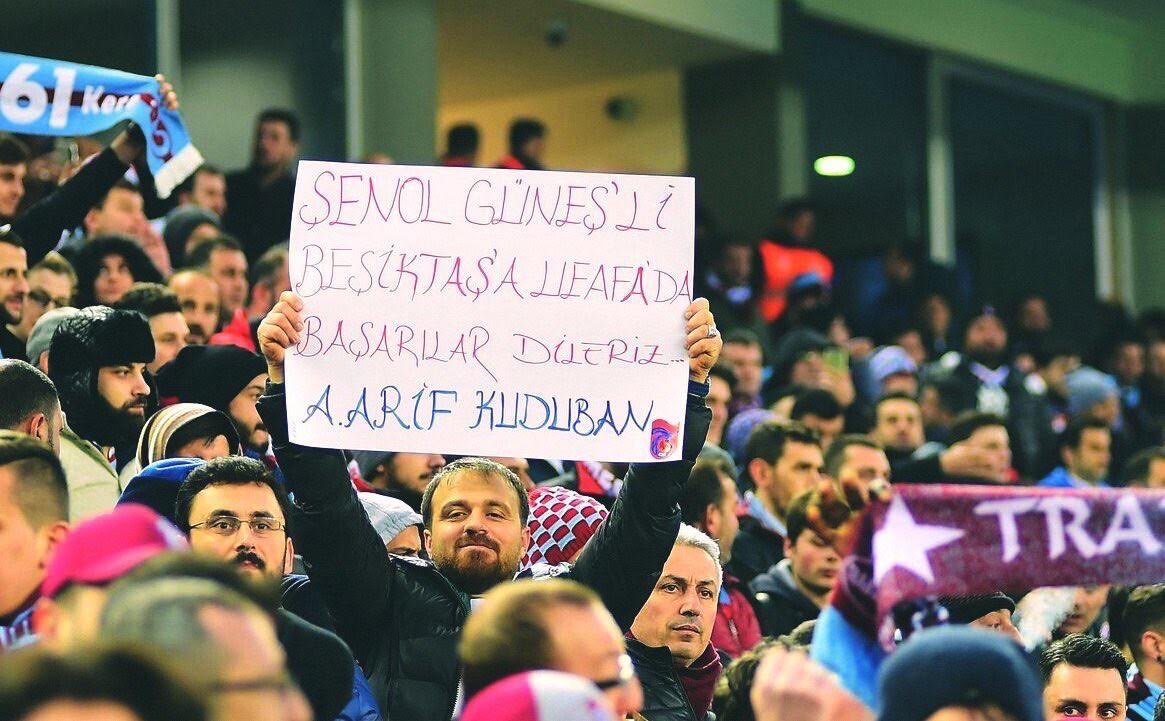 61 Kere
ŞENOL GÜNEŞ'Lİ
BEŞİKTAŞ'A UEAFA'DA
BAŞARILAR DİLERİZ...
A.ARİF KUDUBAN
TRA